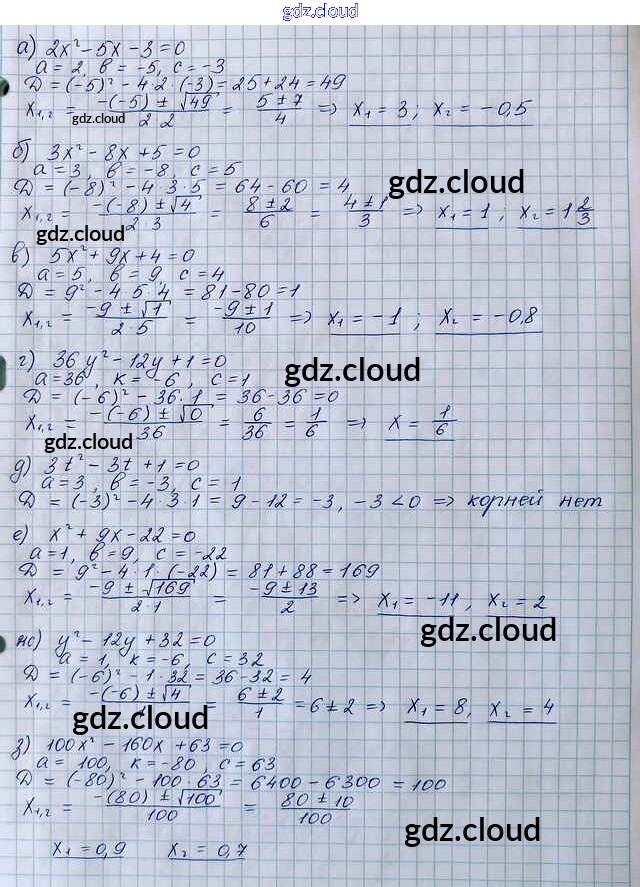 gdz.cloud
а) 2x² - 5x - 3 = 0
a = 2, в = -5, c = -3
D = (-5)² - 4·2·(-3) = 25 + 24 = 49
x₁,₂ = (-(-5) ± √49)/(2 2) = (5 ± 7)/4 ⇒ x₁ = 3; x₂ = -0,5
gdz.cloud
б) 3x² - 8x + 5 = 0
a = 3, в = -8, c = 5
D = (-8)² - 4·3·5 = 64 - 60 = 4
gdz.cloud
x₁,₂ = (-(-8) ± √4)/(2·3) = (8 ± 2)/6 = (4 ± 1)/3 ⇒ x₁ = 1; x₂ = 1 2/3
gdz.cloud
в) 5x² + 9x + 4 = 0
a = 5, в = 9, c = 4
D = 9² - 4 5 4 = 81 - 80 = 1
x₁,₂ = (-9 ± √1)/(2·5) = (-9 ± 1)/10 ⇒ x₁ = -1; x₂ = -0,8
gdz.cloud
г) 36y² - 12y + 1 = 0
a = 36, к = -6, c = 1
gdz.cloud
D = (-6)² - 36·1 = 36 - 36 = 0
x₁,₂ = (-(-6) ± √0)/36 = 6/36 = 1/6 ⇒ x = 1/6
gdz.cloud
д) 3t² - 3t + 1 = 0
a = 3, в = -3, c = 1
D = (-3)² - 4·3·1 = 9 - 12 = -3, -3 < 0 ⇒ корней нет
е) x² + 9x - 22 = 0
a = 1, в = 9, c = -22
D = 9² - 4·1·(-22) = 81 + 88 = 169
x₁,₂ = (-9 ± √169)/(2·1) = (-9 ± 13)/2 ⇒ x₁ = -11, x₂ = 2
gdz.cloud
ж) y² - 12y + 32 = 0
a = 1, к = -6, c = 32
D = (-6)² - 1·32 = 36 - 32 = 4
x₁,₂ = (-(-6) ± √4)/1 = (6 ± 2)/1 = 6 ± 2 ⇒ x₁ = 8, x₂ = 4
gdz.cloud
з) 100x² - 160x + 63 = 0
a = 100, к = -80, c = 63
D = (-80)² - 100·63 = 6400 - 6300 = 100
x₁,₂ = (-(80) ± √100)/100 = (80 ± 10)/100
gdz.cloud
x₁ = 0,9 x₂ = 0,7